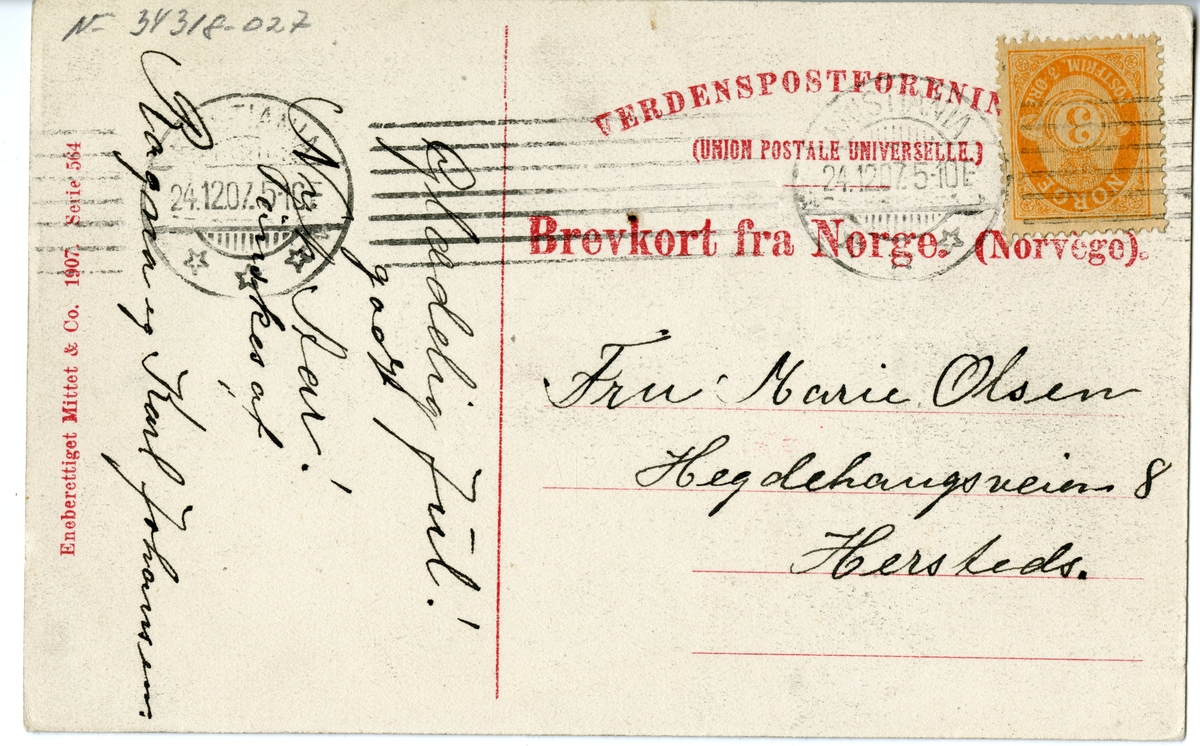 N- 34318-027
VERDENSPOSTFORENIN
(UNION POSTALE UNIVERSELLE.)
Brevkort fra Norge. (Norvège).
NORGE
POSTFRIM. 3 ØRE
3
24.12.07.5-10E
24.12.07.5-10E
Glædelig Jul!
godt
Nytt Aar!
ønskes af
Ragna og Karl Johansen.
Fru Marie Olsen
Hegdehaugsveien 8
Hersteds.
Eneberettiget Mittet & Co. 1907. Serie 564